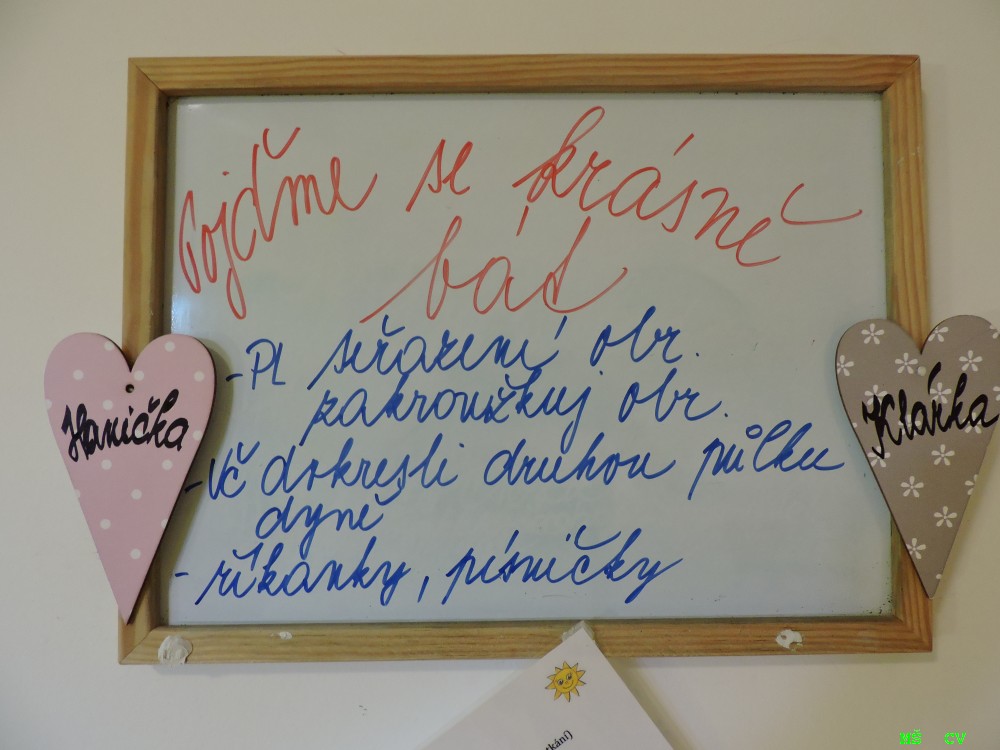 Pojďme se krásně
bát
-PL seřazení obr.
zakroužkuj obr.
-VČ dokresli druhou půlku
dyně
- říkanky, písničky
Hanička
Klárka
tkání)
MŠ CV